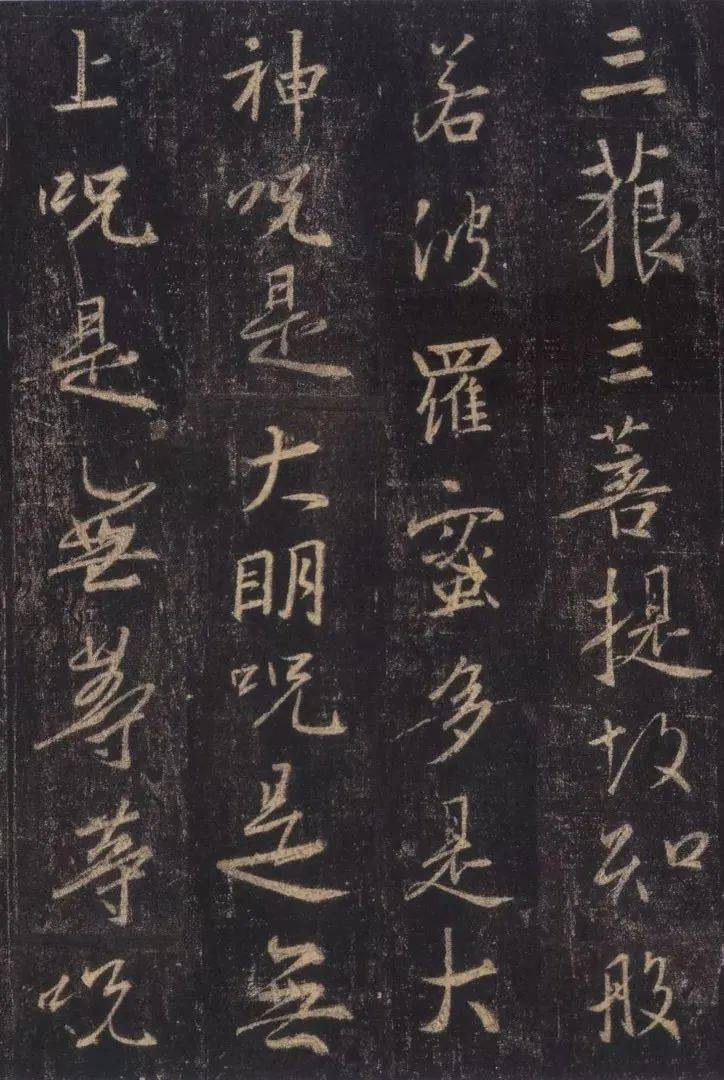 三藐三菩提故知般
若波羅蜜多是大
神咒是大明咒是無
上咒是無等等咒